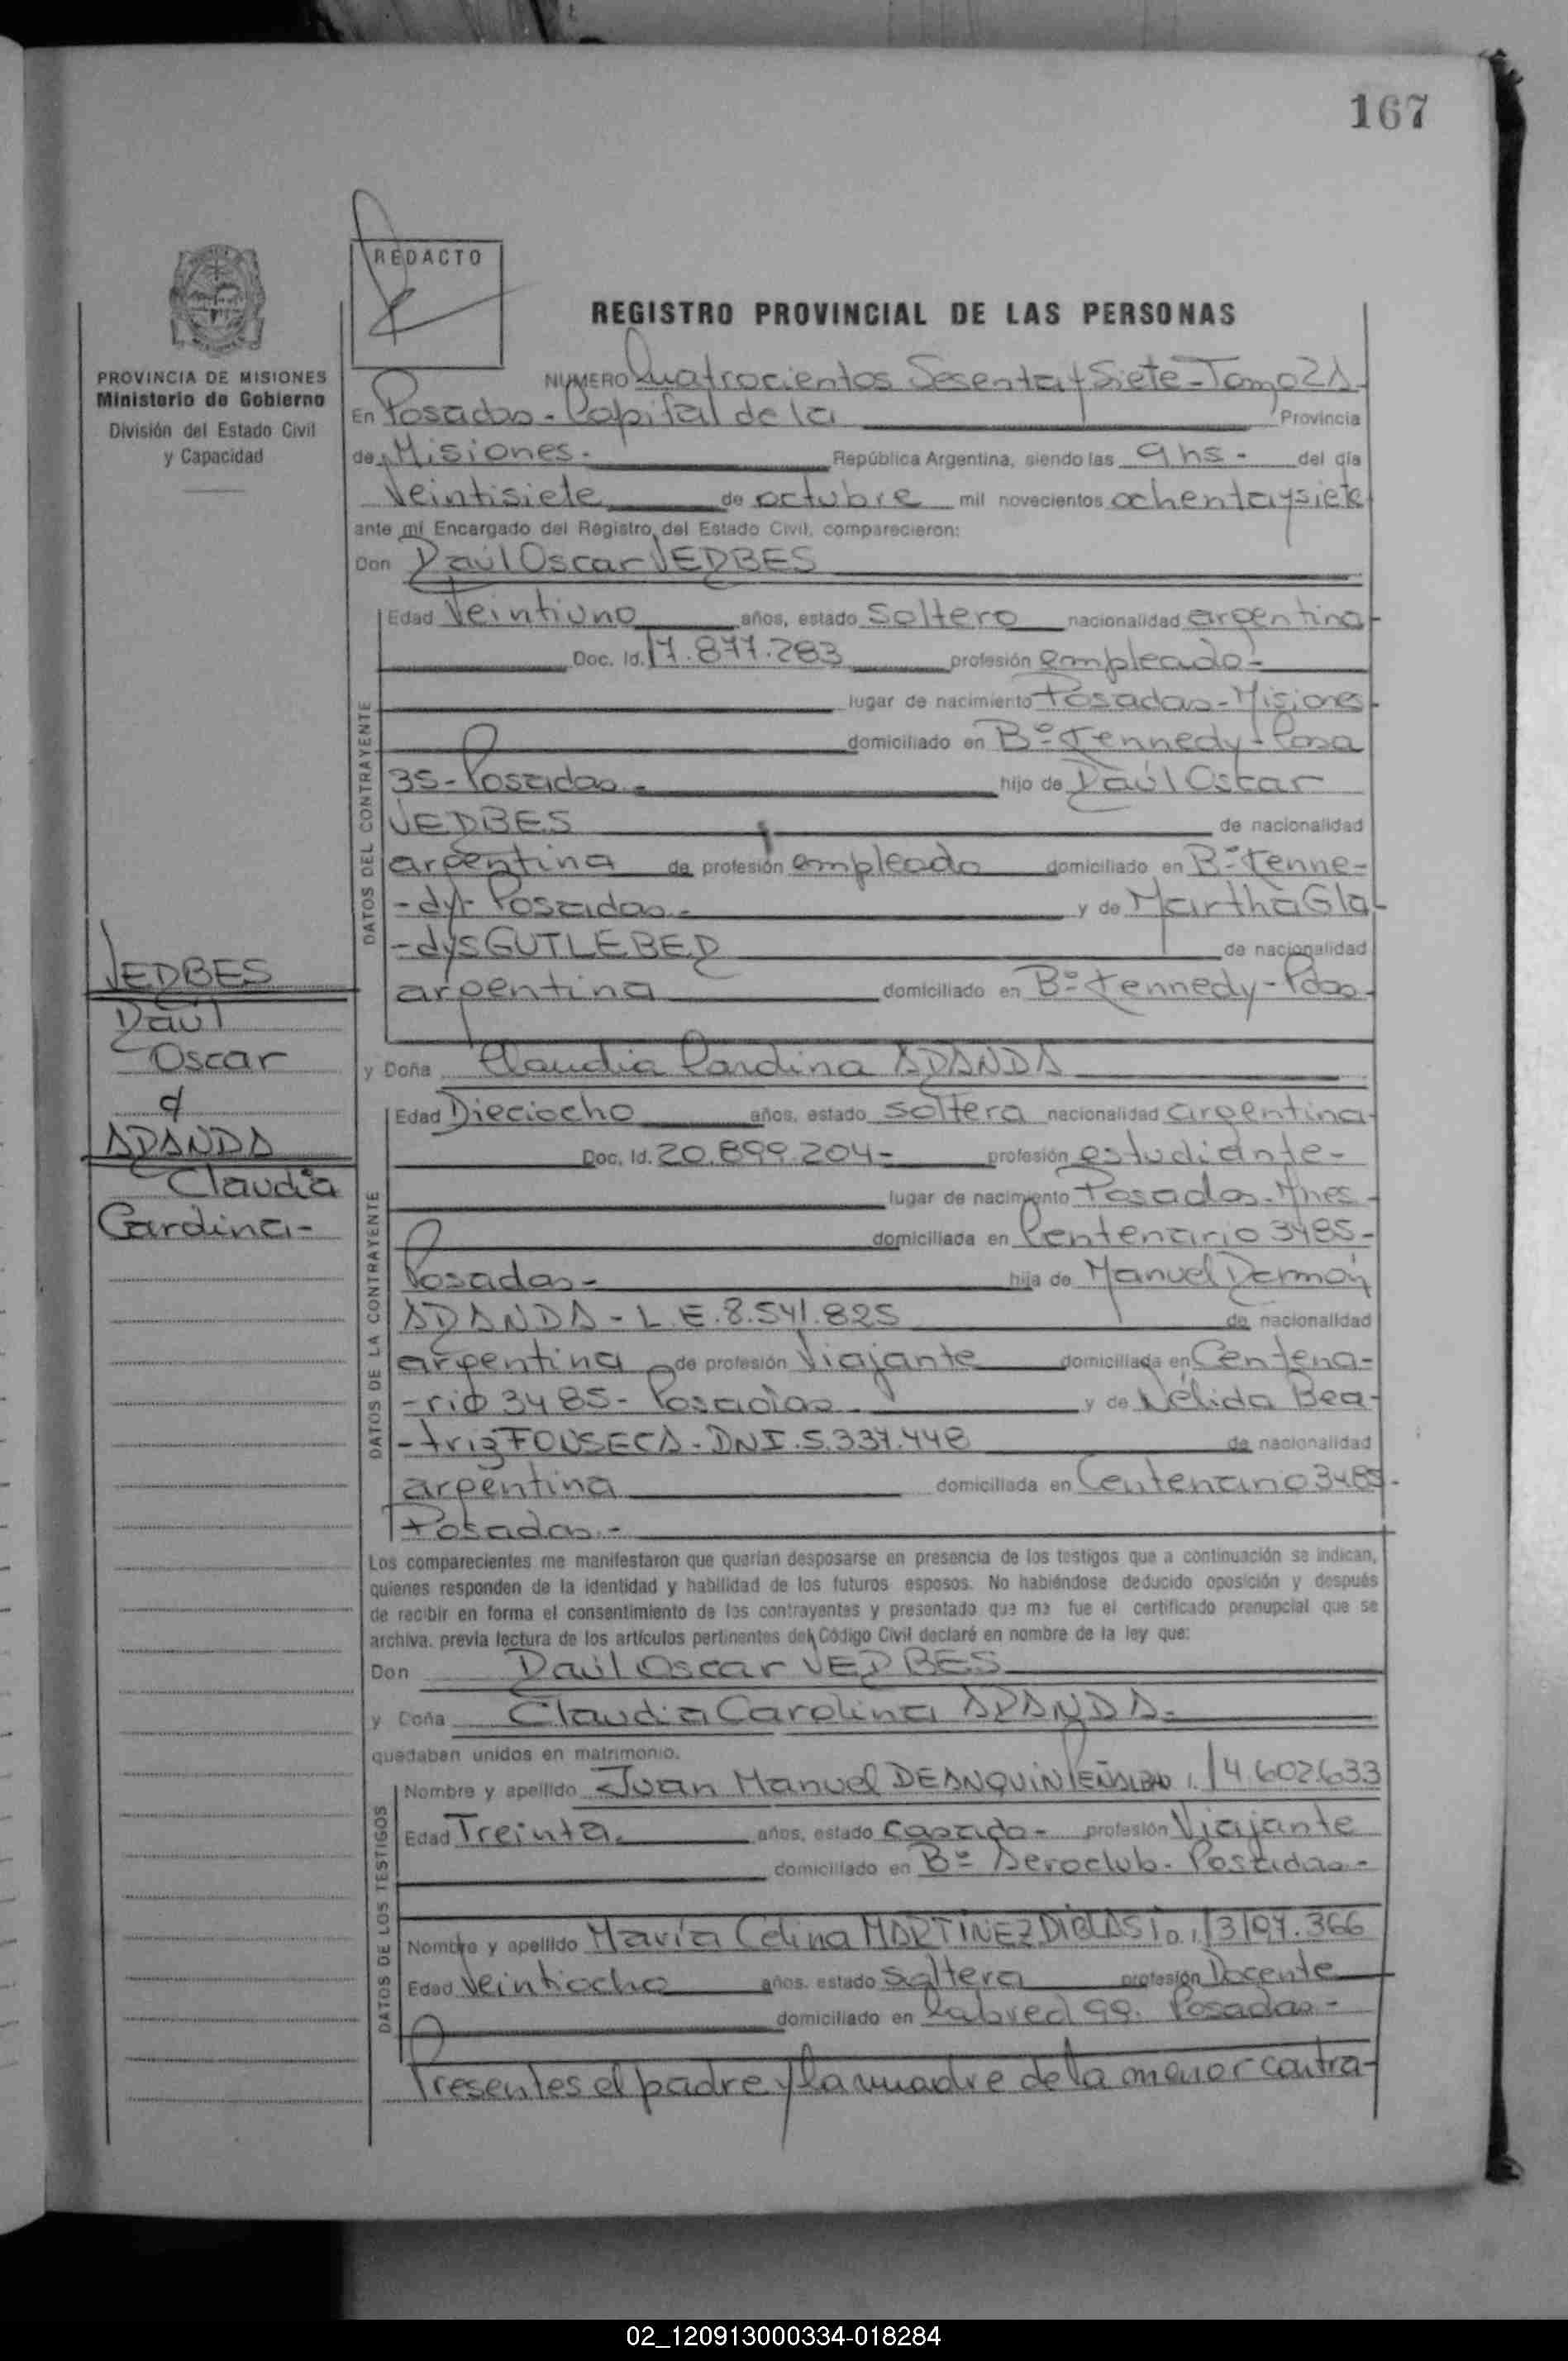 167
REDACTO
REGISTRO PROVINCIAL DE LAS PERSONAS
PROVINCIA DE MISIONES
Ministerio de Gobierno
División del Estado Civil
y Capacidad
NUMERO Cuatrocientos Sesenta y Siete - Tomo 2A
En Posadas - Capital de la Provincia
de Misiones - República Argentina, siendo las 9 hs - del día
Veintisiete de octubre mil novecientos ochenta y siete
ante mi Encargado del Registro del Estado Civil, comparecieron:
Don Raúl Oscar VERBES
DATOS DEL CONTRAYENTE
Edad Veintiuno años, estado Soltero nacionalidad argentina
Doc. Id. 17.877.283 profesión empleado -
lugar de nacimiento Posadas - Misiones
domiciliado en Bº Kennedy - Casa
35 - Posadas - hijo de Raúl Oscar
VERBES de nacionalidad
argentina de profesión empleado domiciliado en Bº Kenne-
-dy - Posadas - y de Martha Gla
-dys GUTLEBER de nacionalidad
argentina domiciliado en Bº Kennedy - Pdas -
VERBES
Raúl
Oscar
c/
ARANDA
Claudia
Carolina -
y Doña Claudia Carolina ARANDA
DATOS DE LA CONTRAYENTE
Edad Dieciocho años, estado soltera nacionalidad argentina
Doc. Id. 20.899.204 - profesión estudiante -
lugar de nacimiento Posadas - Mnes -
domiciliada en Centenario 3485 -
Posadas - hija de Manuel Ramón
ARANDA - L.E. 8.541.825 de nacionalidad
argentina de profesión Viajante domiciliada en Centena-
-rio 3485 - Posadas - y de Nélida Bea-
-triz FONSECA - DNI. 5.337.448 de nacionalidad
argentina domiciliada en Centenario 3485 -
Posadas -
Los comparecientes me manifestaron que querían desposarse en presencia de los testigos que a continuación se indican,
quienes responden de la identidad y habilidad de los futuros esposos. No habiéndose deducido oposición y después
de recibir en forma el consentimiento de los contrayentes y presentado que me fue el certificado prenupcial que se
archiva, previa lectura de los artículos pertinentes del Código Civil declaré en nombre de la ley que:
Don Raúl Oscar VERBES
y Doña Claudia Carolina ARANDA -
quedaban unidos en matrimonio.
DATOS DE LOS TESTIGOS
Nombre y apellido Juan Manuel DEANQUIN 14.602.633
Edad Treinta años, estado casado - profesión Viajante
domiciliado en Bº Aeroclub - Posadas -
Nombre y apellido María Celina MARTINEZ DIBLASI D.I. 13197.366
Edad Veintiocho años, estado soltera profesión Docente
domiciliado en Cabred 99. Posadas -
Presentes el padre y la madre de la menor contra-
02_120913000334-018284